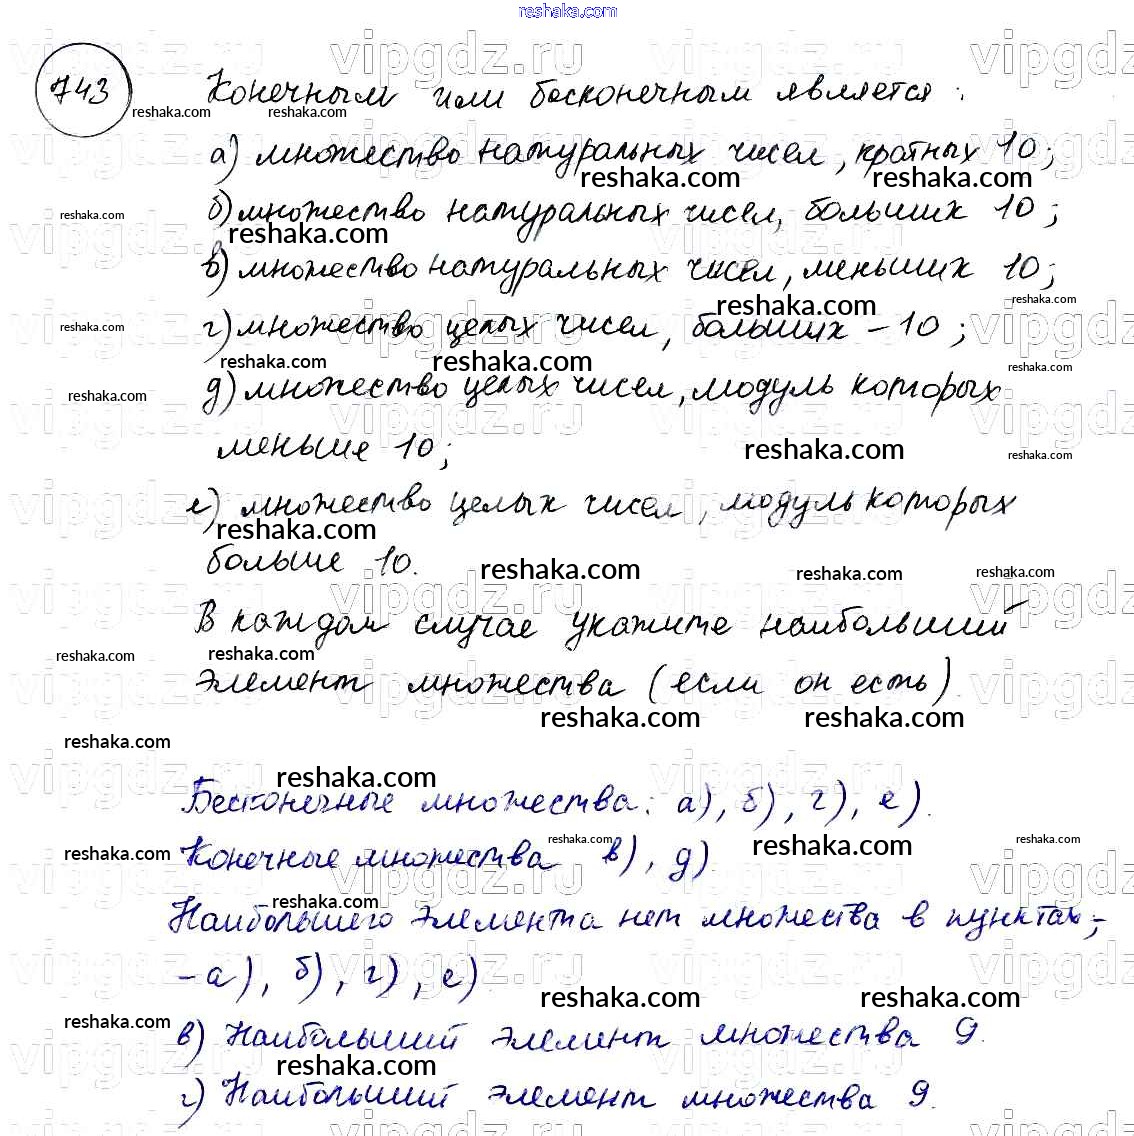 reshaka.com
743 Конечным или бесконечным является:
а) множество натуральных чисел, кратных 10;
б) множество натуральных чисел, больших 10;
в) множество натуральных чисел, меньших 10;
г) множество целых чисел, больших -10;
д) множество целых чисел, модуль которых
меньше 10;
е) множество целых чисел, модуль которых
больше 10.
В каждом случае укажите наибольший
элемент множества (если он есть).
Бесконечные множества: а), б), г), е).
Конечные множества в), д)
Наибольшего элемента нет множества в пунктах;
- а), б), г), е).
в) Наибольший элемент множества 9.
г) Наибольший элемент множества 9.